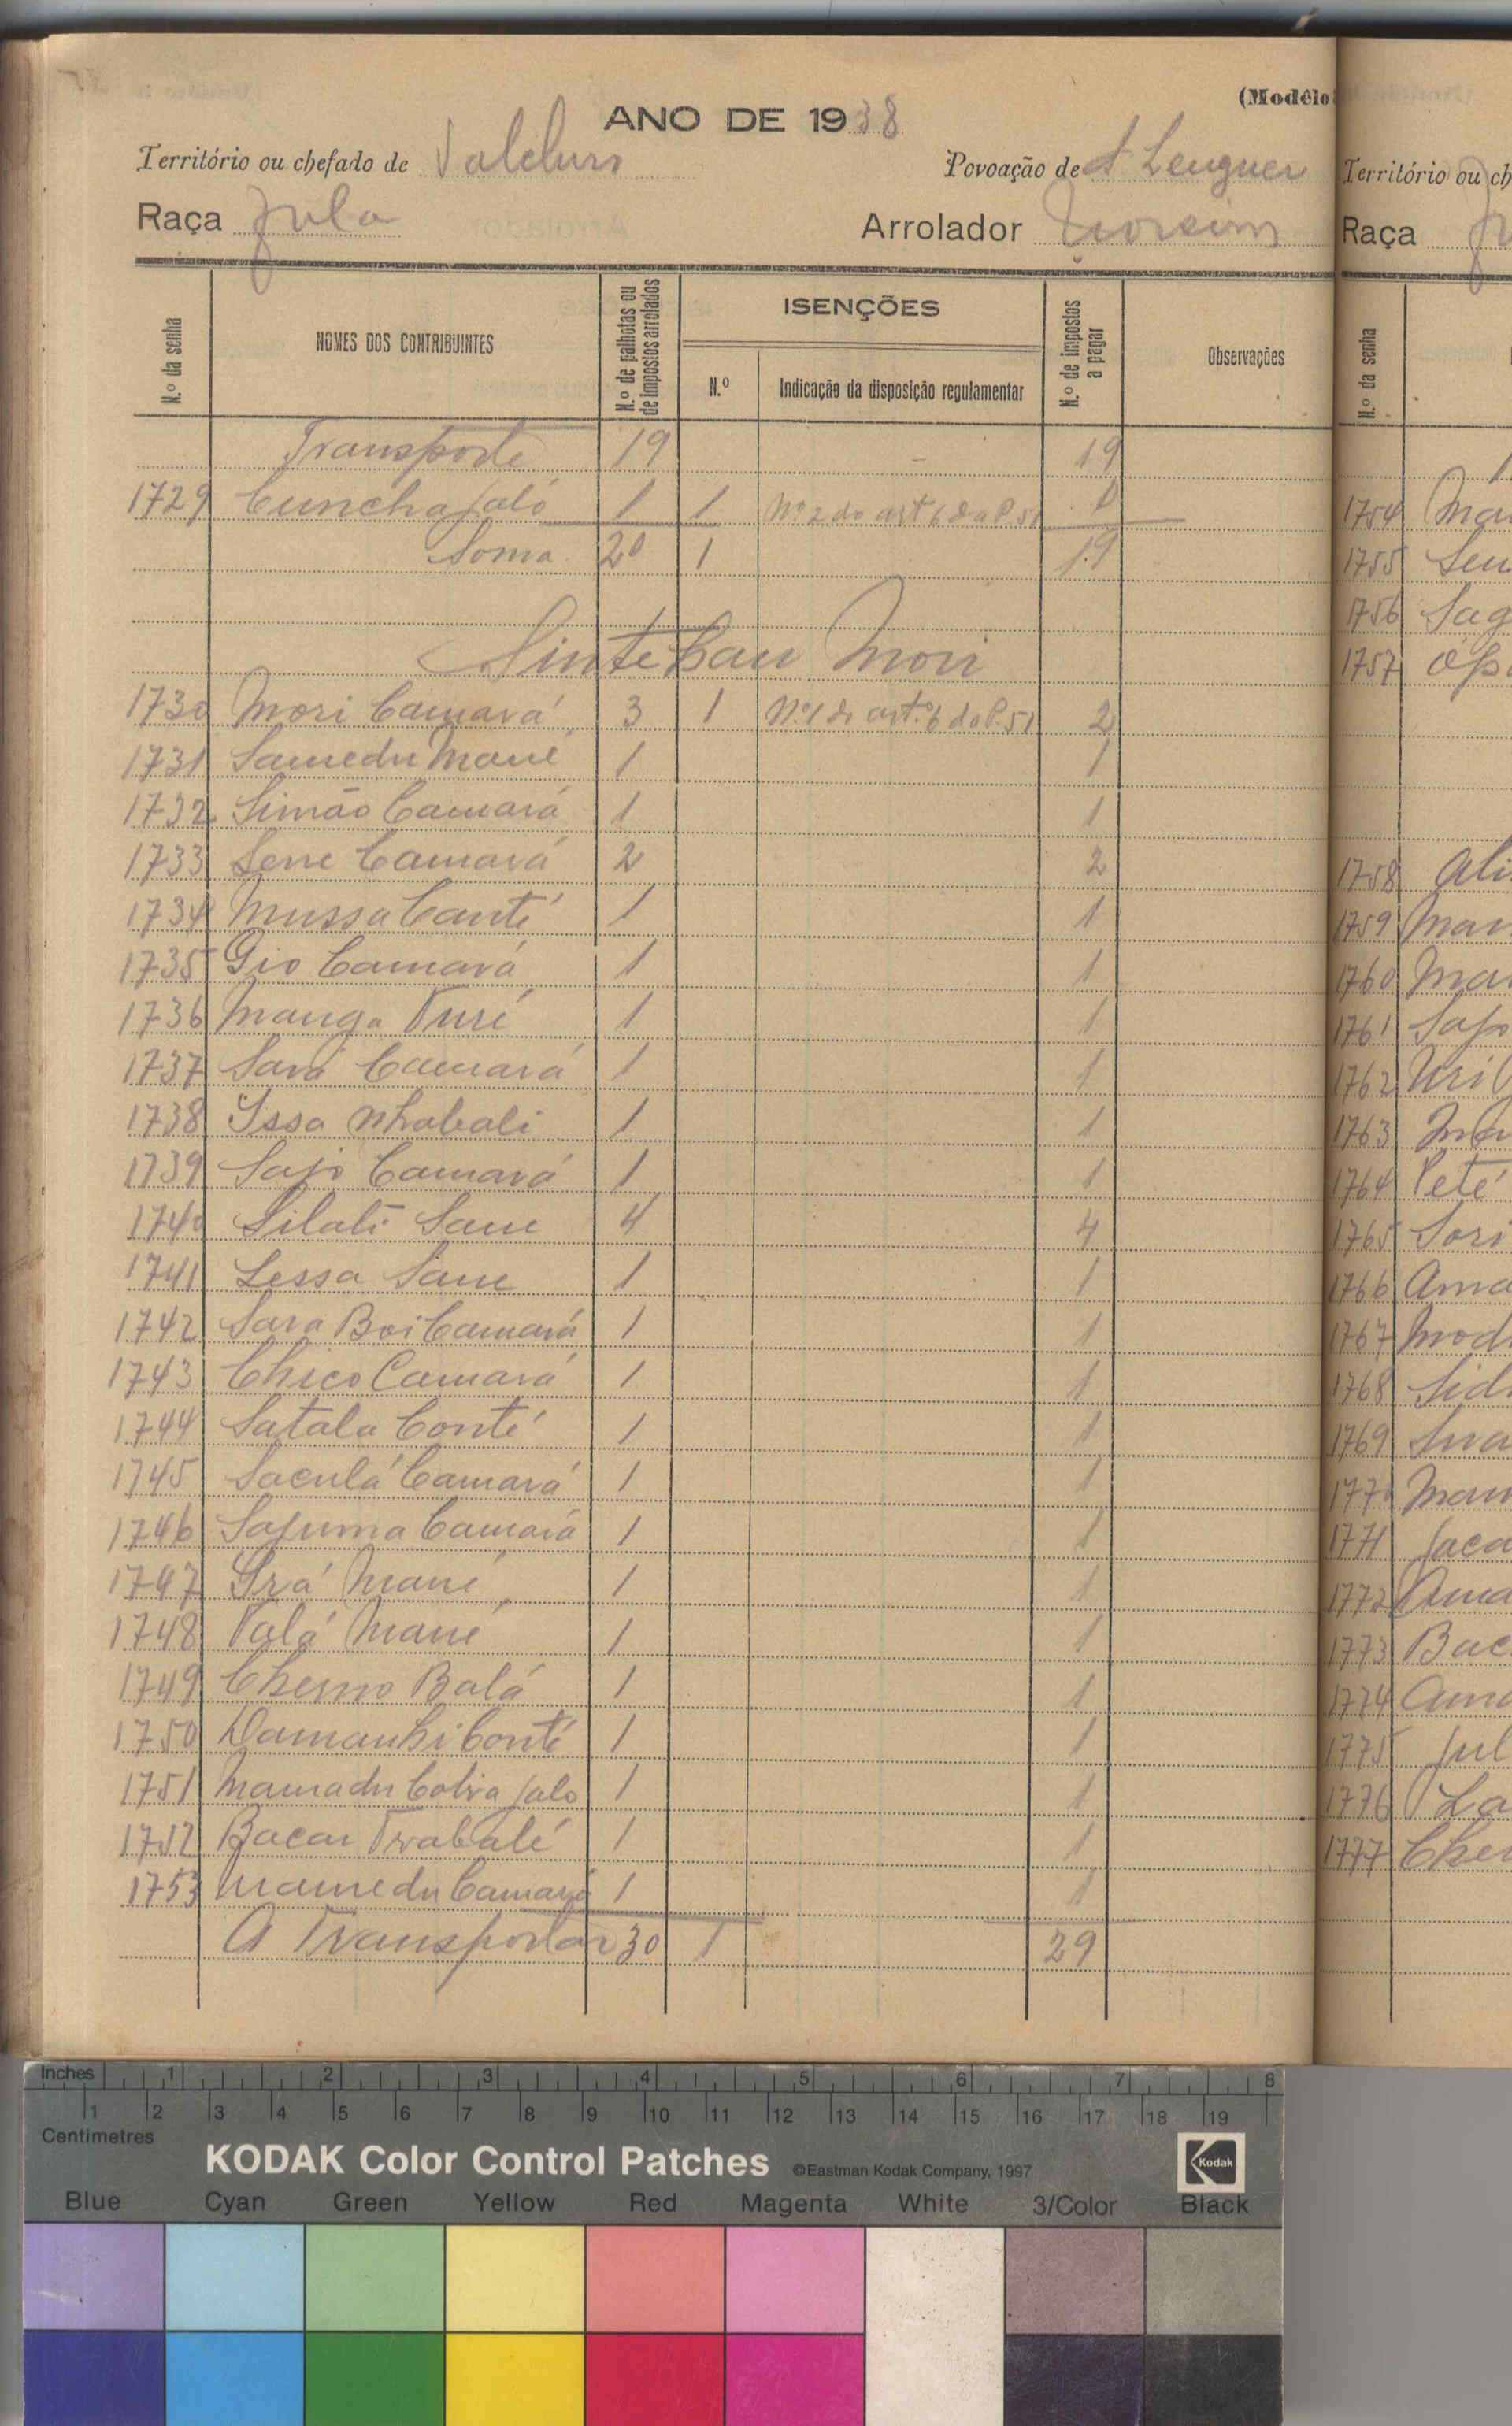 (Modêlo
ANO DE 1938
Território ou chefado de
Povoação de
Raça Fula
Arrolador
N.º da senha
NOMES DOS CONTRIBUINTES
N.º de palhotas ou de impostos arrolados
ISENÇÕES
N.º
Indicação da disposição regulamentar
N.º de impostos a pagar
Observações
Transporte 19 19
1729 Cuncha Jaló 1 1 Nº 2 do art 6 do P. 51 0
Soma 20 1 19
Sinte Mori
1730 Mori Camará 3 1 Nº 1 do artº 6 do P. 51 2
1731 Samedu Mané 1 1
1732 Simão Camará 1 1
1733 Sene Camará 2 2
1734 Mussa Canté 1 1
1735 Gio Camará 1 1
1736 Manga Turé 1 1
1737 Sará Camará 1 1
1738 Issa Nhabali 1 1
1739 Sajo Camará 1 1
1740 Silati Sane 4 4
1741 Sessa Sane 1 1
1742 Sara Boi Camará 1 1
1743 Chico Camará 1 1
1744 Satala Conté 1 1
1745 Saculá Camará 1 1
1746 Camará 1 1
1747 Mané 1 1
1748 Valá Mané 1 1
1749 Cherno Balá 1 1
1750 Conté 1 1
1751 Mamadu Jalo 1 1
1752 Bacar 1 1
1753 Mamedu Camará 1 1
A Transportar 30 1 29
Território ou ch
Raça
N.º da senha
1754 Mar
1755
1756
1757
1758 Ali
1759 Mar
1760 Mar
1761
1762
1763
1764 Peté
1765 Sori
1766 Ama
1767 Mod
1768 Sid
1769
1770 Mam
1771 Jaca
1772 Ama
1773 Bac
1774 Ama
1775 Jul
1776 La
1777 Cher
Inches 1 2 3 4 5 6 7 8
1 2 3 4 5 6 7 8 9 10 11 12 13 14 15 16 17 18 19
Centimetres
KODAK Color Control Patches ©Eastman Kodak Company, 1997 Kodak
Blue Cyan Green Yellow Red Magenta White 3/Color Black